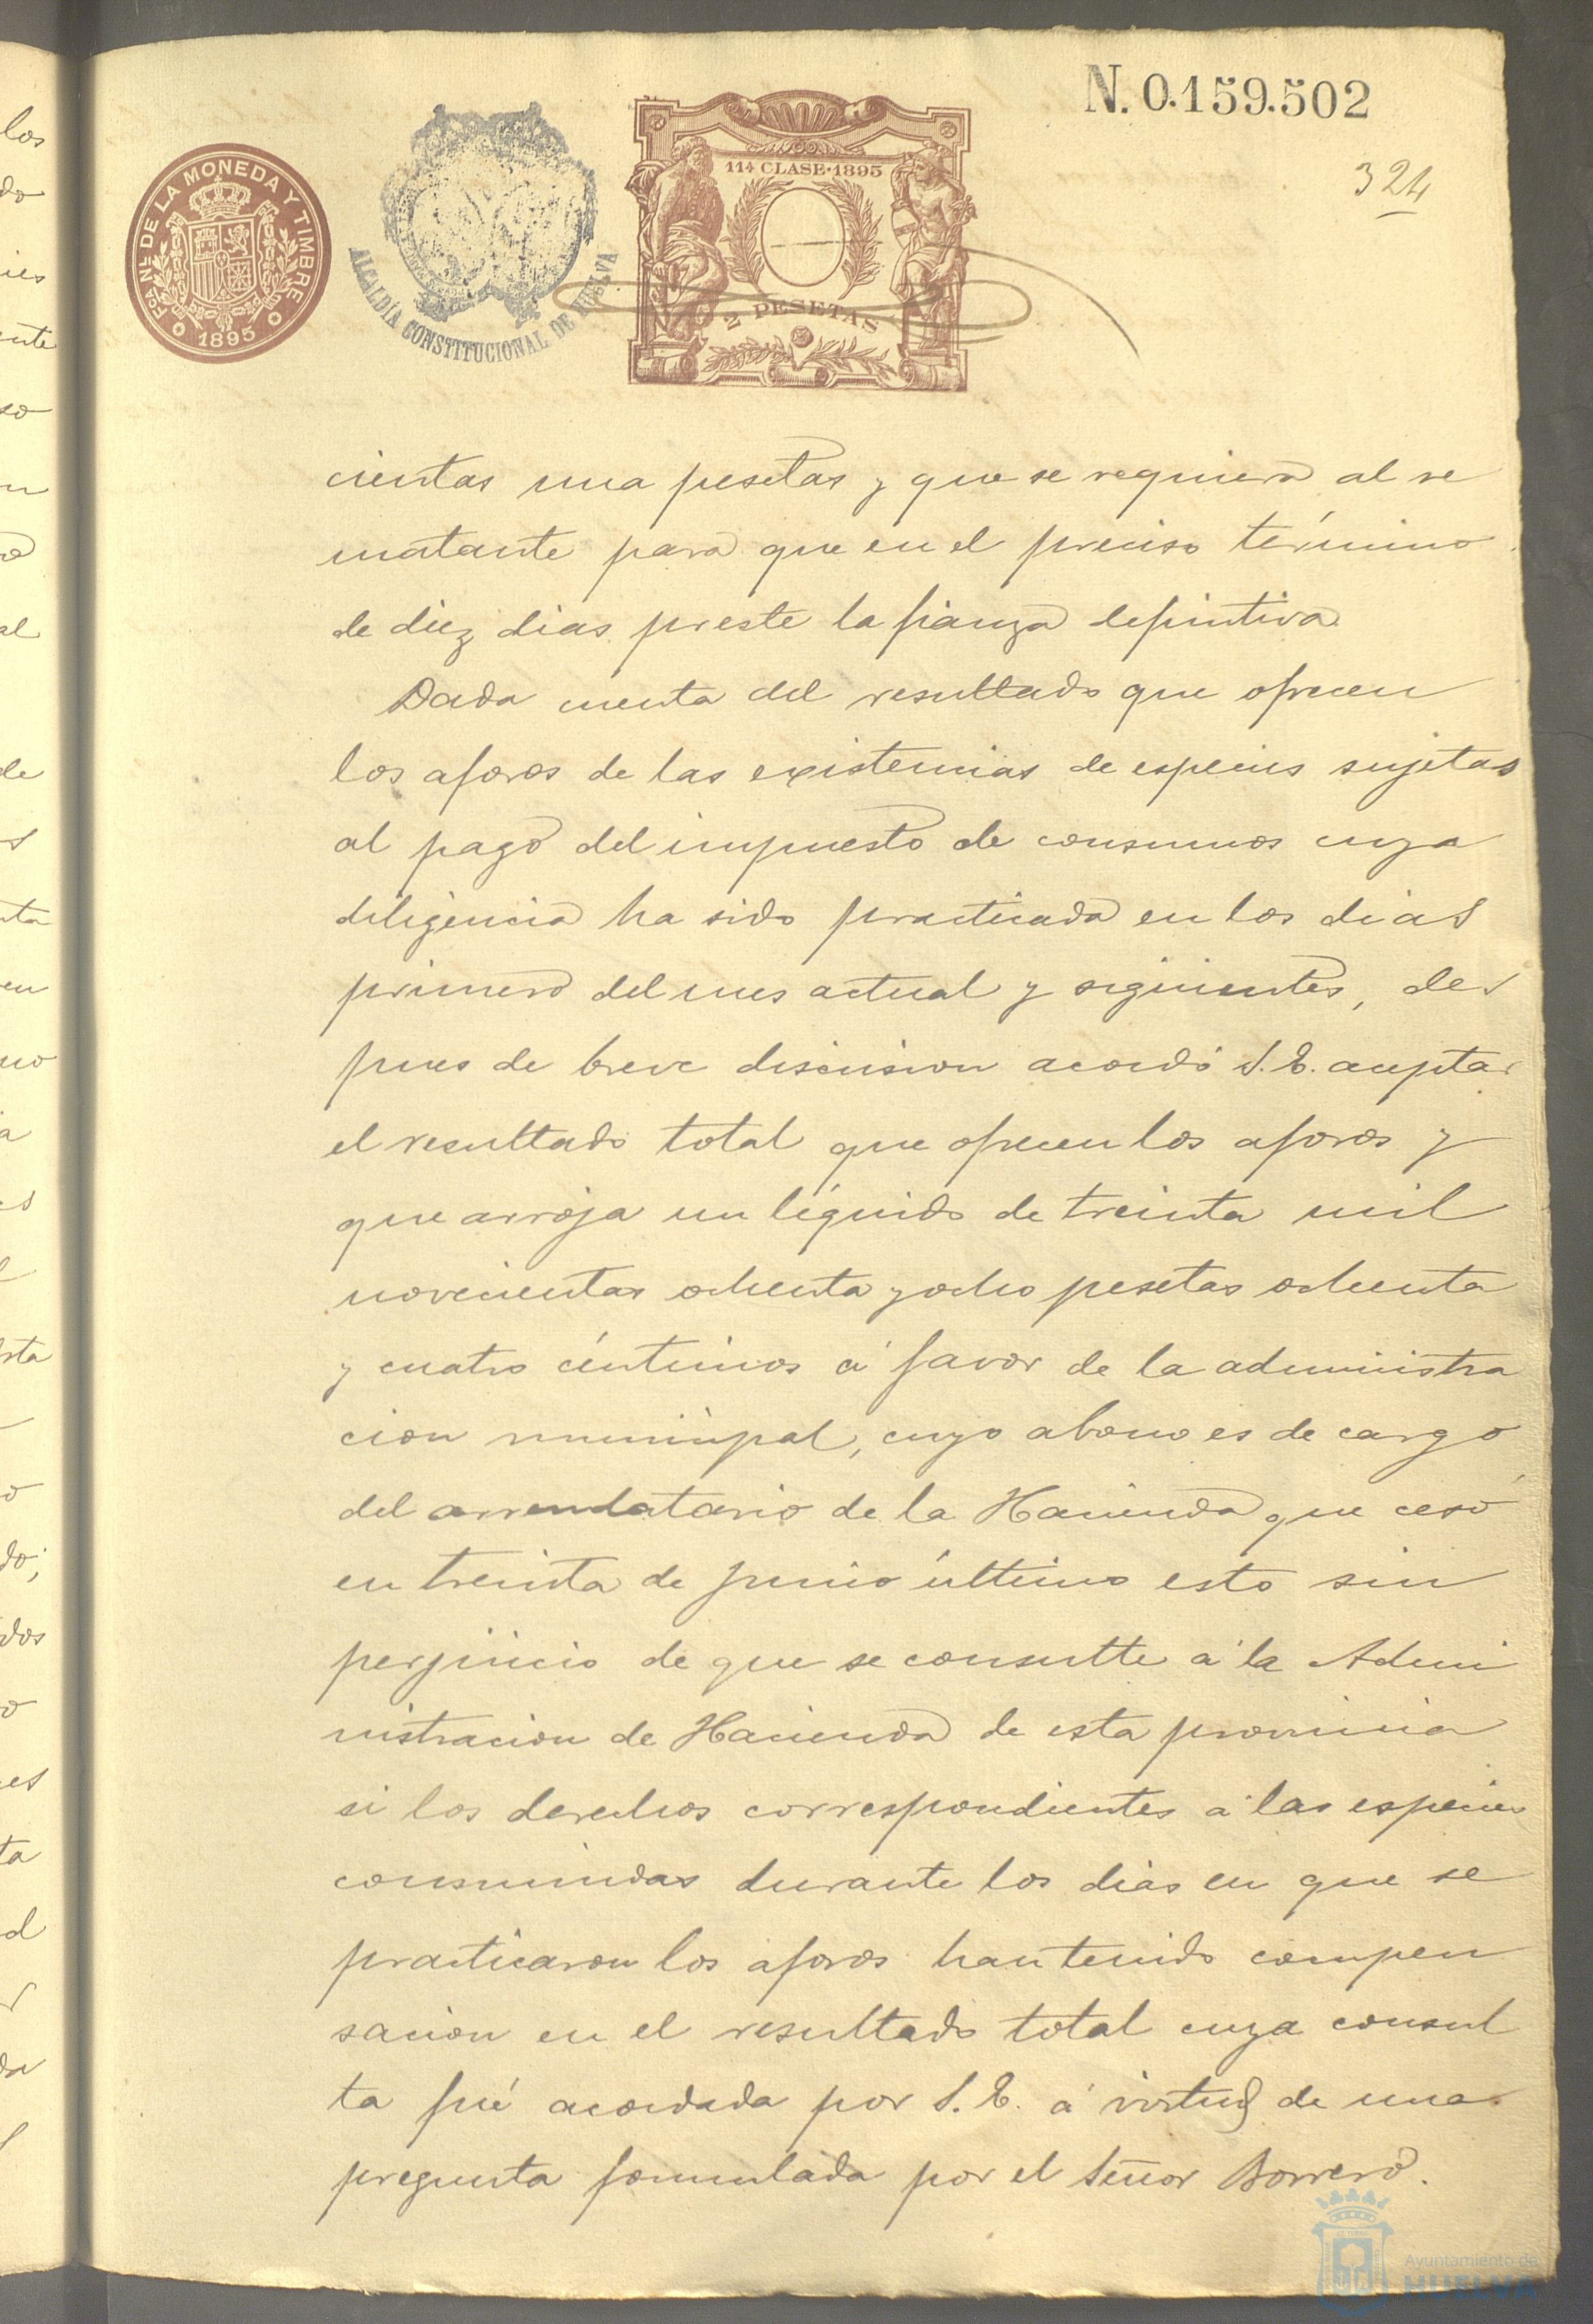 N. 0.159.502
324
FCA NAL DE LA MONEDA Y TIMBRE
1895
ALCALDÍA CONSTITUCIONAL DE HUELVA
11ª CLASE·1895
2 PESETAS
cientas una pesetas y que se requiera al re
matante para que en el preciso término
de diez dias preste la fianza definitiva.
Dada cuenta del resultado que ofrecen
los aforos de las existencias de especies sujetas
al pago del impuesto de consumos cuya
diligencia ha sido practicada en los dias
primero del mes actual y siguientes, des
pues de breve discusion acordó S. E. aceptar
el resultado total que ofrecen los aforos y
que arroja un líquido de treinta mil
novecientas ochenta y ocho pesetas ochenta
y cuatro céntimos á favor de la administra
cion municipal, cuyo abono es de cargo
del arrendatario de la Hacienda que cesó
en treinta de junio último esto sin
perjuicio de que se consulte á la Admi
nistracion de Hacienda de esta provincia
si los derechos correspondientes á las especies
consumidas durante los dias en que se
practicaron los aforos han tenido compen
sacion en el resultado total cuya consul
ta fué acordada por S. E. á virtud de una
pregunta formulada por el Señor Borrero.
Ayuntamiento de
HUELVA